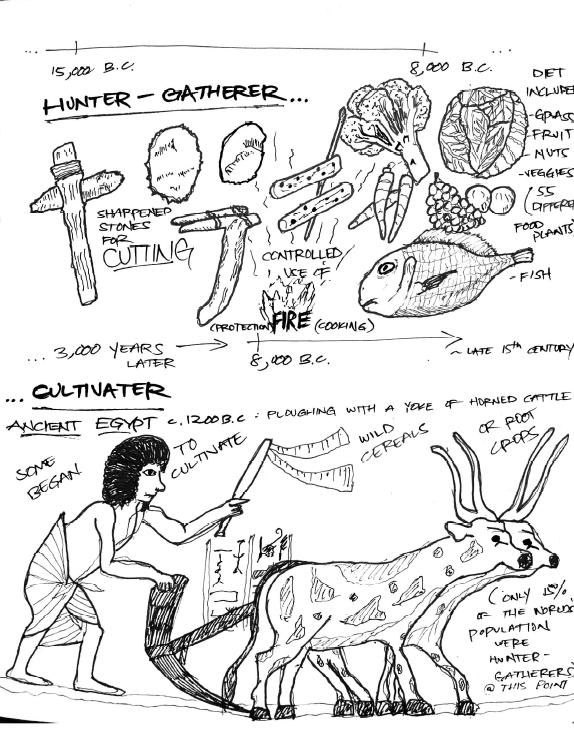 ... ...
15,000 B.C. 8,000 B.C.
HUNTER - GATHERER ...
DIET
INCLUDE
- GRASS
FRUIT
- NUTS
- VEGGIES
(55
DIFFERE
FOOD
PLANTS)
- FISH
SHARPENED
STONES
FOR
CUTTING
CONTROLLED
USE OF
(PROTECTION) FIRE (COOKING)
... 3,000 YEARS
LATER
8,000 B.C.
~ LATE 15th CENTURY
... CULTIVATER
ANCIENT EGYPT c. 1200 B.C : PLOUGHING WITH A YOKE OF HORNED CATTLE
SOME
BEGAN
TO
CULTIVATE
WILD
CEREALS
OR ROOT
CROPS
(ONLY 15%
OF THE
POPULATION
WERE
HUNTER-
GATHERERS
@ THIS POINT